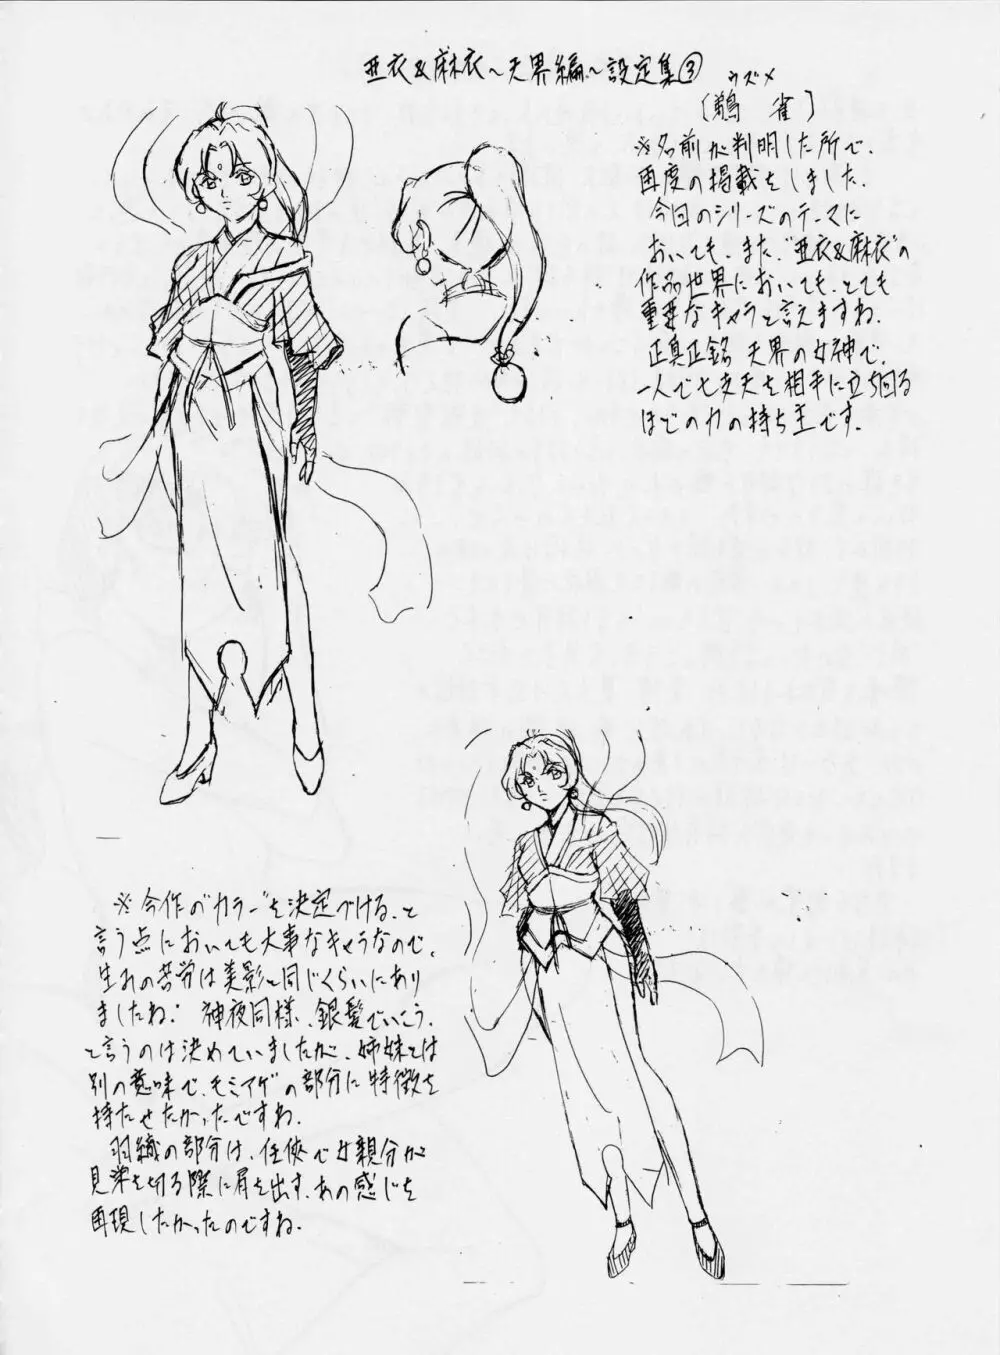 亜衣&麻衣〜天界編〜設定集③
ウズメ
〔鵜 雀〕
※名前が判明した所で、
再度の掲載をしました。
今回のシリーズのテーマに
おいても、また、"亜衣&麻衣"の
作品世界においても、とても
重要なキャラと言えますね。
正真正銘 天界の女神で、
一人で七支天を相手に立ち回る
ほどの力の持ち主です。
※今作の"カラー"を決定づける、と
言う点においても大事なキャラなので、
生みの苦労は美影と同じくらいにあり
ましたね。 神夜同様、銀髪でいこう、
と言うのは決めていましたが、姉妹とは
別の意味で、モミアゲの部分に特徴を
持たせたかったですね。
羽織の部分は、任侠で女親分が
見栄を切る際に肩を出す、あの感じを
再現したかったのですね。